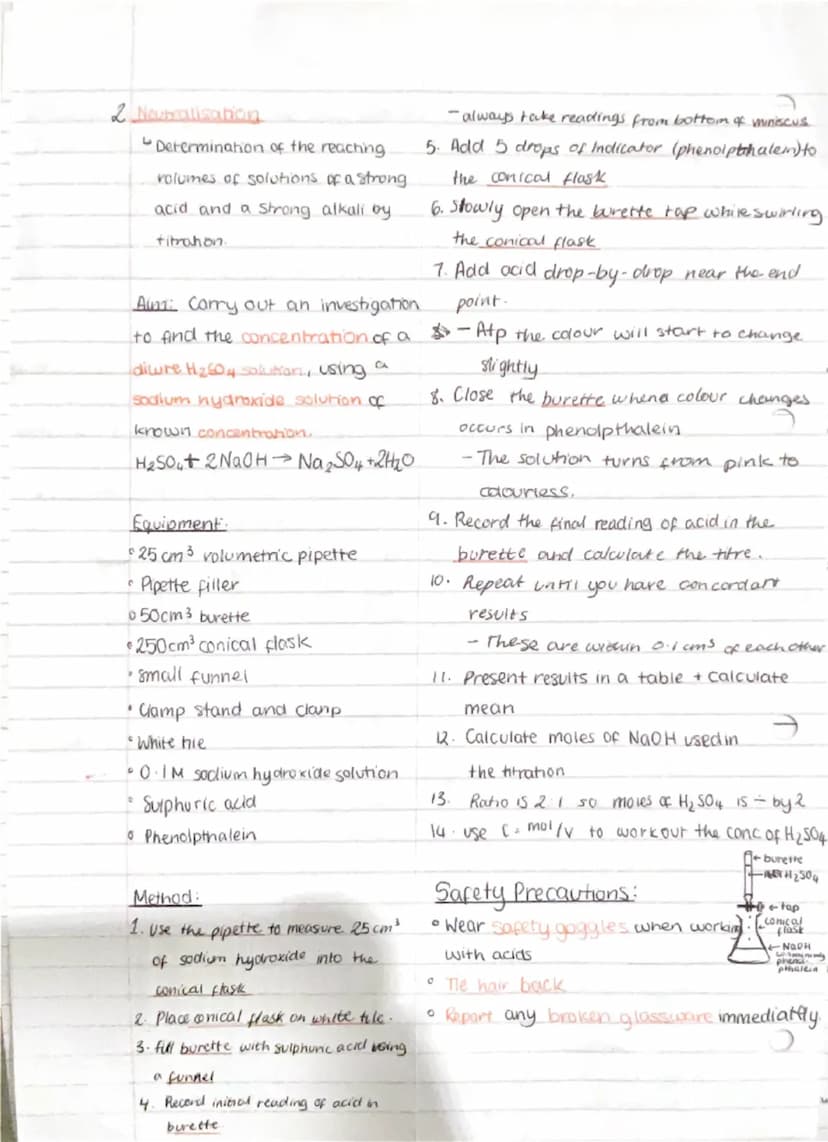 2 Neutralisation
↳ Determination of the reacting
volumes of solutions of a strong
acid and a strong alkali by
titration.
Aim: Carry out an investigation
to find the concentration of a
dilute H₂SO₄ solution, using a
sodium hydroxide solution of
known concentration.
H₂SO₄ + 2NaOH → Na₂SO₄ + 2H₂O
Equipment:
• 25 cm³ volumetric pipette
• Pipette filler
• 50cm³ burette
• 250cm³ conical flask
• small funnel
• Clamp stand and clamp
• White tile
• 0.1M sodium hydroxide solution
• Sulphuric acid
• Phenolpthalein
Method:
1. Use the pipette to measure 25cm³
of sodium hydroxide into the
conical flask
2. Place conical flask on white tile.
3. fill burette with sulphuric acid using
a funnel
4. Record initial reading of acid in
burette
- always take readings from bottom of miniscus
5. Add 5 drops of Indicator (phenolpthalein) to
the conical flask
6. Slowly open the burette tap while swirling
the conical flask
7. Add acid drop-by-drop near the end
point.
- Atp the colour will start to change
slightly
8. Close the burette when a colour changes
occurs in phenolpthalein
- The solution turns from pink to
colourless.
9. Record the final reading of acid in the
burette and calculate the titre.
10. Repeat until you have concordant
results
- These are within 0.1cm³ of each other
11. Present results in a table + calculate
mean
12. Calculate moles of NaOH used in
the titration
13. Ratio is 2:1 so moles of H₂SO₄ is ÷ by 2
14. use C = mol/v to work out the conc of H₂SO₄
← burette
H₂SO₄
← tap
conical
flask
← NaOH
phenol-
pthalein
Safety Precautions:
• Wear safety goggles when working
with acids
• Tie hair back
• Report any broken glassware immediatly.